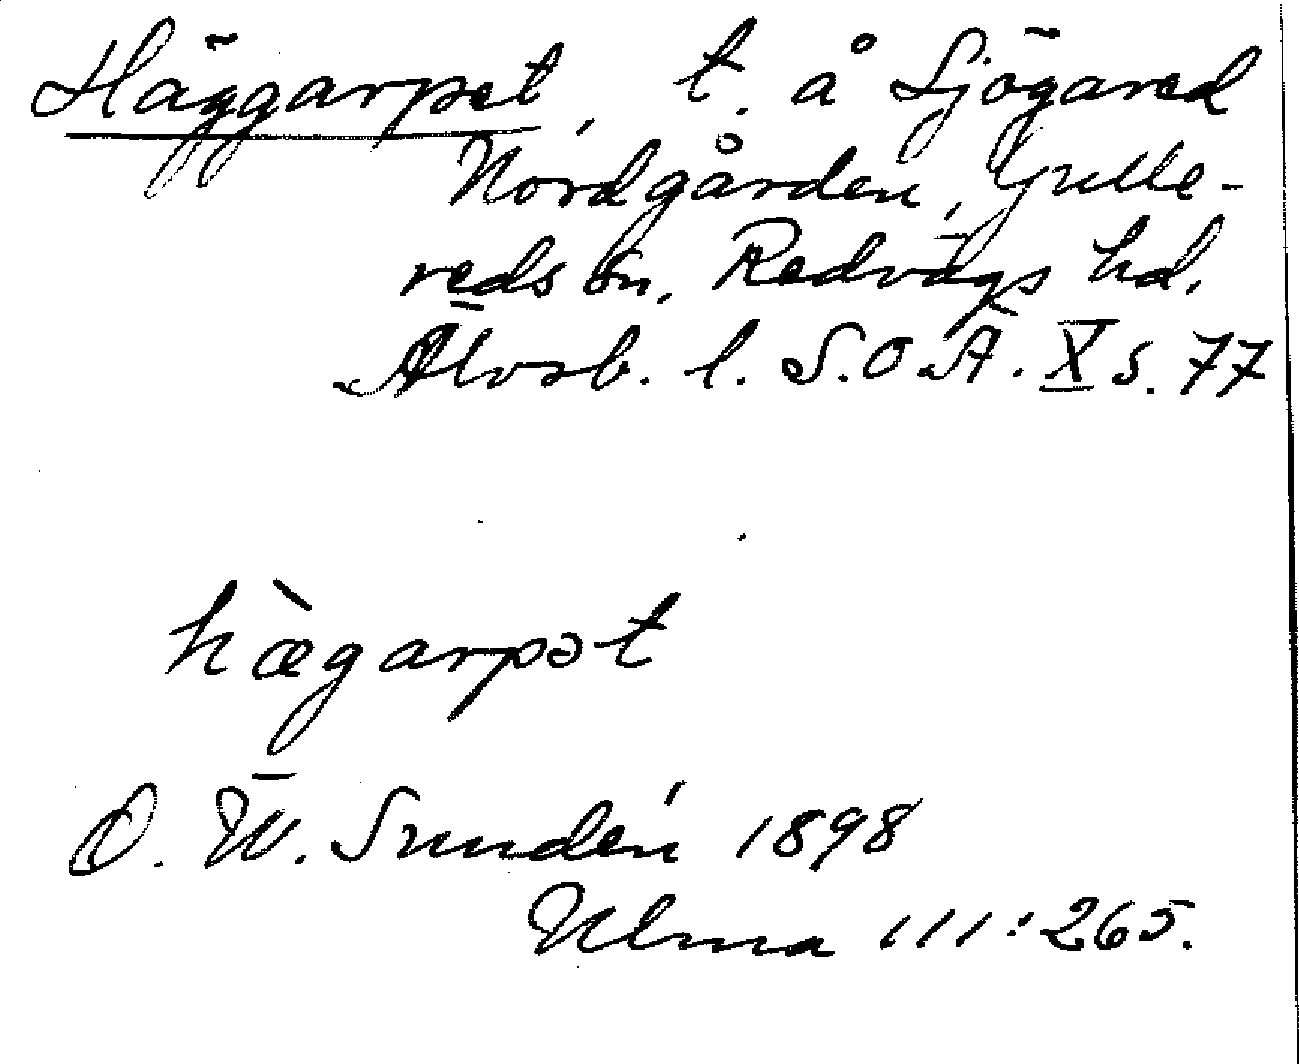 Häggarpet, t. å Sjögared
Nordgården, Gulle-
reds sn, Redvägs hd,
Älvsb. l. S.O.Ä. X s. 77
hægàrpət
D. W. Sundén 1898
Ulma 111:265.